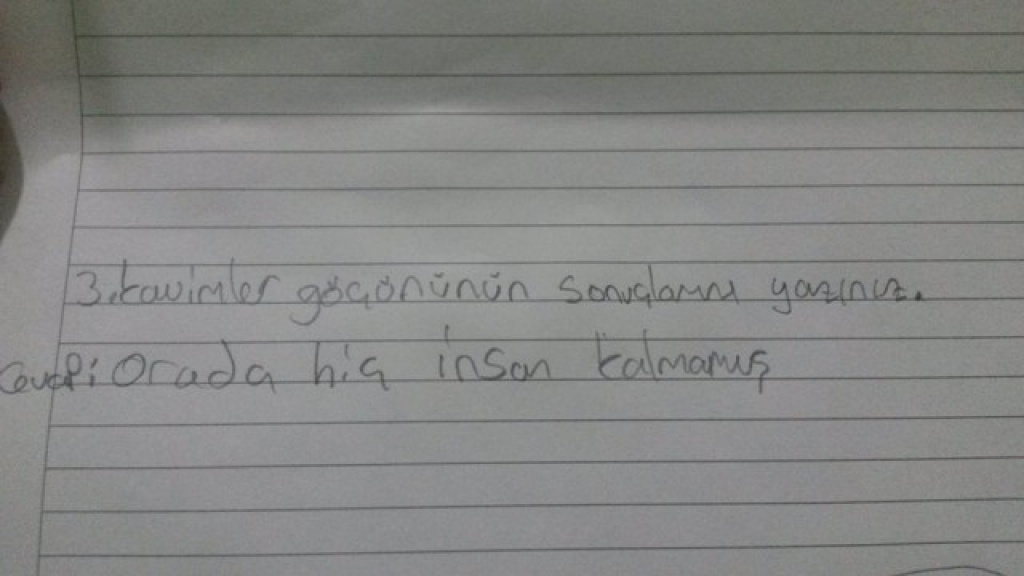 3. kavimler göçönünün sonuçlarını yazınız.
Cevap: Orada hiç insan kalmamış